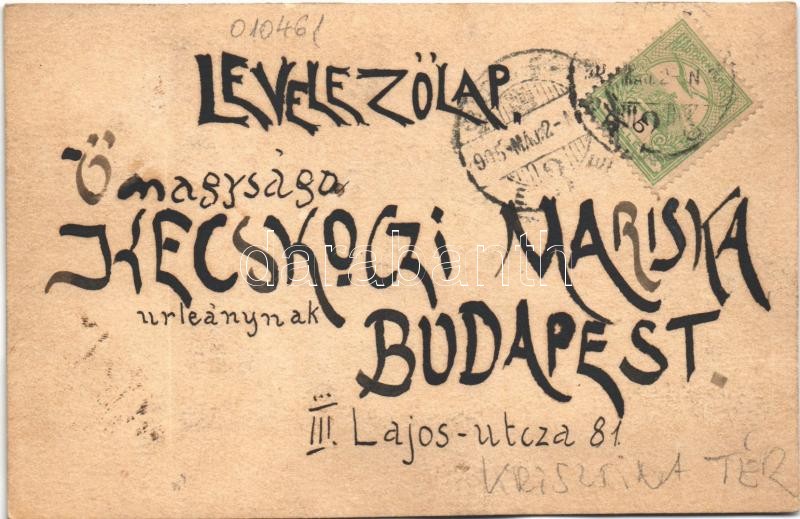 010461
LEVELEZŐLAP,
905 MÁJ. 2
Ő nagysága
KECSKŐCZI MARISKA
urleánynak
BUDAPEST.
III. Lajos-utcza 81
KRISZTINA TÉR
darabanth